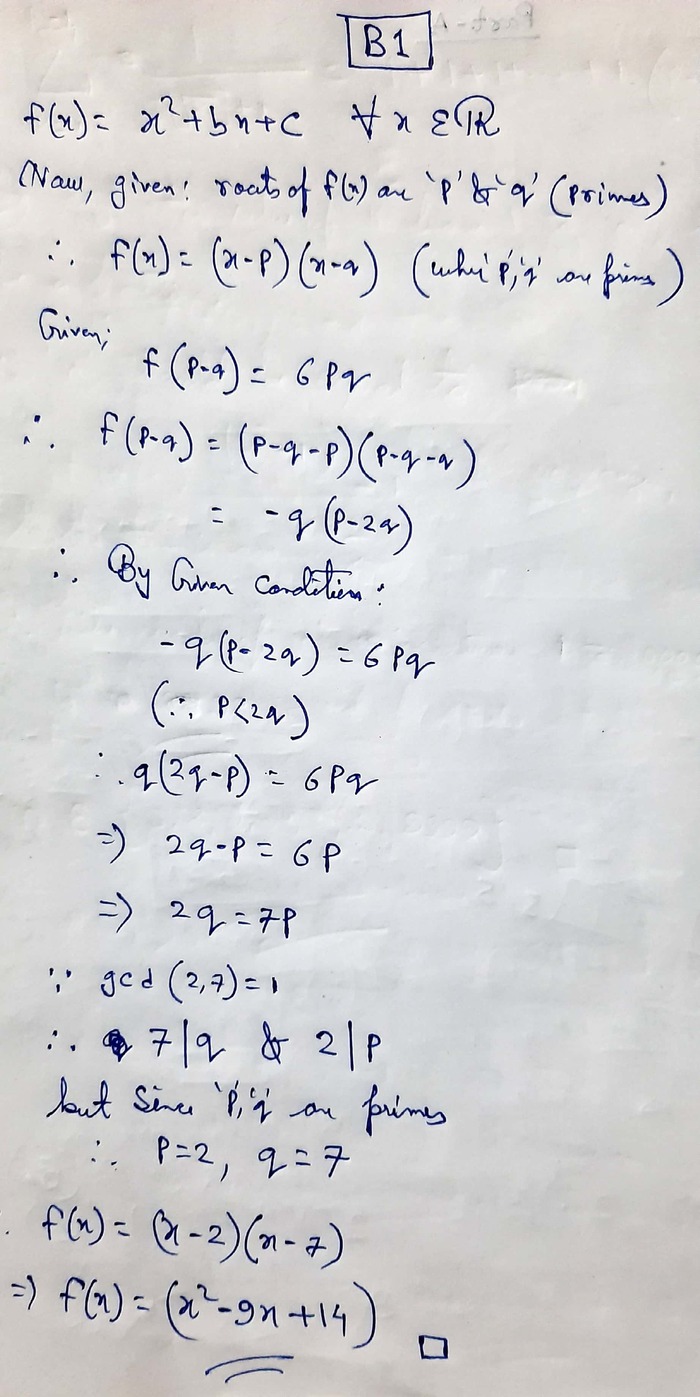 B1
f(x) = x²+bx+c ∀ x ∈ ℝ
Now, given: roots of f(x) are 'p' & 'q' (primes)
∴ f(x) = (x-p)(x-q) (where 'p','q' are primes)
Given;
f(p-q) = 6pq
∴ f(p-q) = (p-q-p)(p-q-q)
= -q(p-2q)
∴ By Given Condition:
-q(p-2q) = 6pq
(∴ p<2q)
∴ q(2q-p) = 6pq
=> 2q-p = 6p
=> 2q = 7p
∵ gcd(2,7)=1
∴ 7|q & 2|p
but since 'p','q' are primes
∴ p=2, q=7
f(x) = (x-2)(x-7)
=> f(x) = (x²-9x+14) □